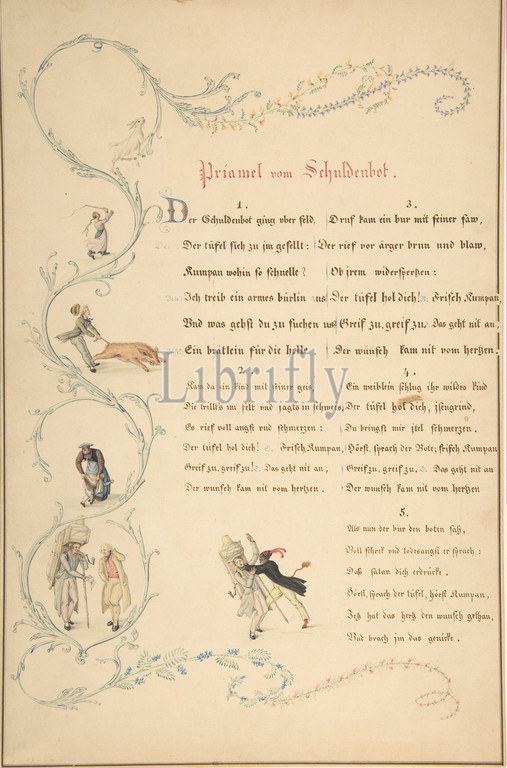 Priamel vom Schuldenbot.
1.
Der Schuldenbot ging vber feld,
Der tüfel sich zu im gesellt:
Kumpan wohin so schnelle?
Ich treib ein armes bürlin us
Vnd was gehst du zu suchen us
Ein brätlein für die helle.
2.
Kam da ein kind mit seiner geis,
Die trillts im felt vnd jagts in schweis,
Es rief voll angst vnd schmerzen:
Der tüfel hol dich! Frisch, Kumpan,
Greif zu, greif zu! Das geht nit an,
Der wunsch kam nit vom hertzen.
3.
Druf kam ein bur mit seiner saw,
Der rief vor ärger brun und blaw,
Ob jrem widersperßen:
Der tüfel hol dich! Frisch Kumpan,
Greif zu, greif zu. Das geht nit an,
Der wunsch kam nit vom hertzen.
4.
Ein weiblin schlug ihr wildes kind
Der tüfel hol dich, isengrind,
Du bringst mir itel schmerzen.
Hörst, sprach der Bote; frisch Kumpan
Greif zu, greif zu. Das geht nit an
Der wunsch kam nit vom hertzen
5.
Als nun der bur den boten sah,
Voll schreck vnd todesangst er sprach:
Daß satan dich erdrücke.
Hörst, sprach der tüfel, hörst Kumpan,
Jetz hat das hertz den wunsch gethan,
Vnd brach jm das genicke.
Librifly